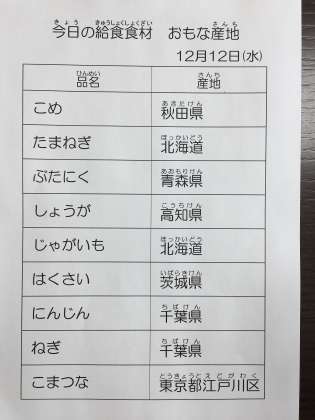 今日の給食食材 おもな産地
12月12日(水)
品名 産地
こめ 秋田県
たまねぎ 北海道
ぶたにく 青森県
しょうが 高知県
じゃがいも 北海道
はくさい 茨城県
にんじん 千葉県
ねぎ 千葉県
こまつな 東京都江戸川区